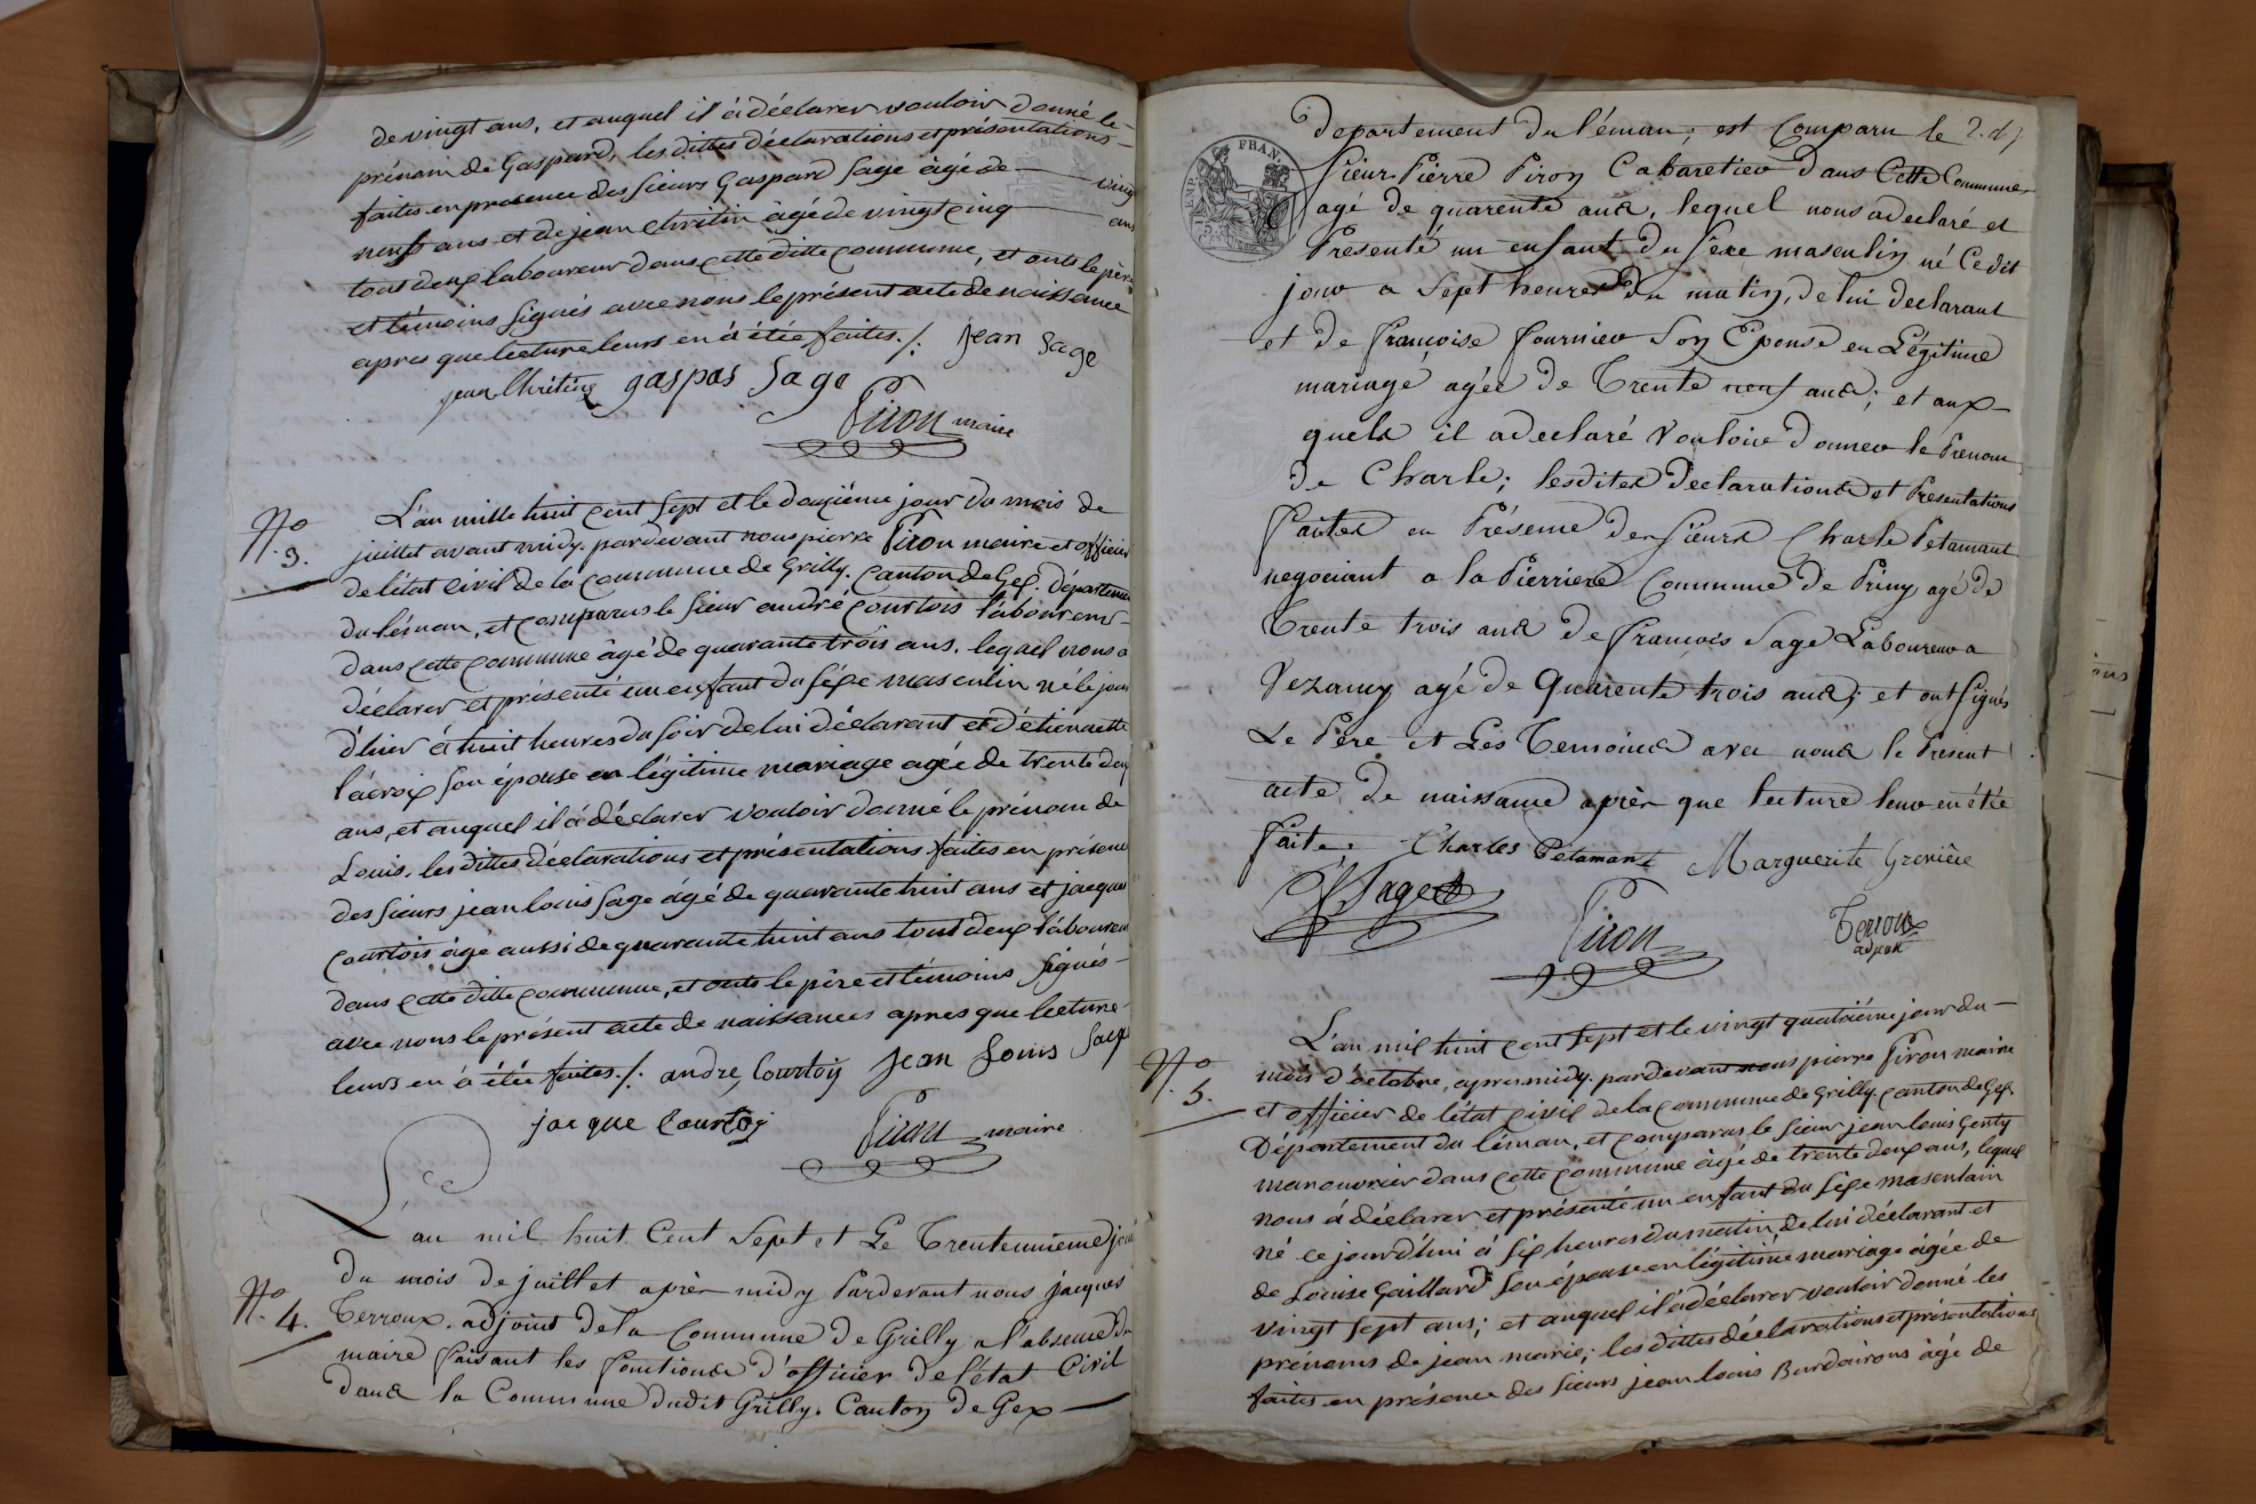 de vingt ans, et auquel il à déclarer vouloir donné le
prénom de Gaspard, les dittes déclarations et présentations
faites en presence des sieurs Gaspard Sage âgé de vingt
neuf ans et de jean Chritin âgé de vingt cinq ans
tout deux laboureur dans cette ditte commune, et onts le père
et témoins signés avec nous le présent acte de naissance
apres que lecture leurs en à étée faites ./. Jean Sage
jean Chritin gaspas Sage
Piron maire
No 3.
L'an mille huit cent sept et le douzième jour du mois de
juillet avant midy. pardevant nous pierre Piron maire et officier
de l'état civil de la commune de Grilly. Canton de Gex. Département
du léman, et comparus le sieur andré courtois laboureur
dans cette commune âgé de quarante trois ans. lequel nous a
déclarer et présenté un enfant du séxe masculin né le jour
d'hier à huit heures du soir de lui déclarant et d'étiennette
lacroix son épouse en légitime mariage agée de trente deux
ans, et auquel il à déclarer vouloir donné le prénom de
Louis, les dittes déclarations et présentations faites en présence
des sieurs jean louis Sage âgé de quarante huit ans et jacque
courtois âgé aussi de quarante huit ans tout deux laboureur
dans cette ditte commune, et onts le père et témoins signés
avec nous le présent acte de naissances apres que lecture
leurs en à étée faites ./. andre Courtois Jean Louis Sage
jacque Courtois Piron maire
L'an mil huit Cent Sept et Le Trenteunieme jour
du mois de juillet après midy Pardevant nous jacques
No 4.
Terroux. adjoint de la Commune de Grilly a l'absence du
maire faisant les fonctions d'officier de l'état Civil
dans la Commune dudit Grilly. Canton de Gex
FRAN.
EMP.
departement du léman; est Comparu le
Sieur Pierre Piron Cabaretier dans Cette Commune
agé de quarente ans, lequel nous a declaré et
Presenté un enfant du sexe masculin né Cedit
jour a Sept heures du matin, de lui declarant
et de françoise fournier Son Epouse en Légitime
mariage agée de Trente neuf ans; et aux
quels il a declaré Vouloir donner le Prenom
de Charle; lesdites Declarations et Presentations
faites en Présence des sieurs Charle Petamant
negociant a la Pierriere Commune de Priny agé de
Trente trois ans de françois Sage Laboureur a
Vezancy agé de Quarente trois ans; et ont signés
Le Pere et Les Temoins avec nous le Present
acte de naissance après que lecture leur en étée
faite. Charles Pétamant Marguerite Grenière
f Sage
Piron
Terroux
adjoint
No 5.
L'an mil huit cent sept et le vingt quatrième jour du
mois d'octobre, apres midy. pardevant nous pierre Piron maire
et officier de l'état civil de la commune de Grilly. canton de Gex.
Département du léman, et comparus le sieur jean louis Genty
manouvrier dans cette commune âgé de trente deux ans, lequel
nous à déclarer et présenté un enfant du séxe masculain
né ce jourd'hui à six heures du matin, de lui déclarant et
de Louise Gaillard son épouse en légitime mariage âgée de
vingt sept ans; et auquel il à déclarer vouloir donné les
prénoms de jean marie; les dittes déclarations et présentations
faites en présence des sieurs jean louis Burdairons âgé de